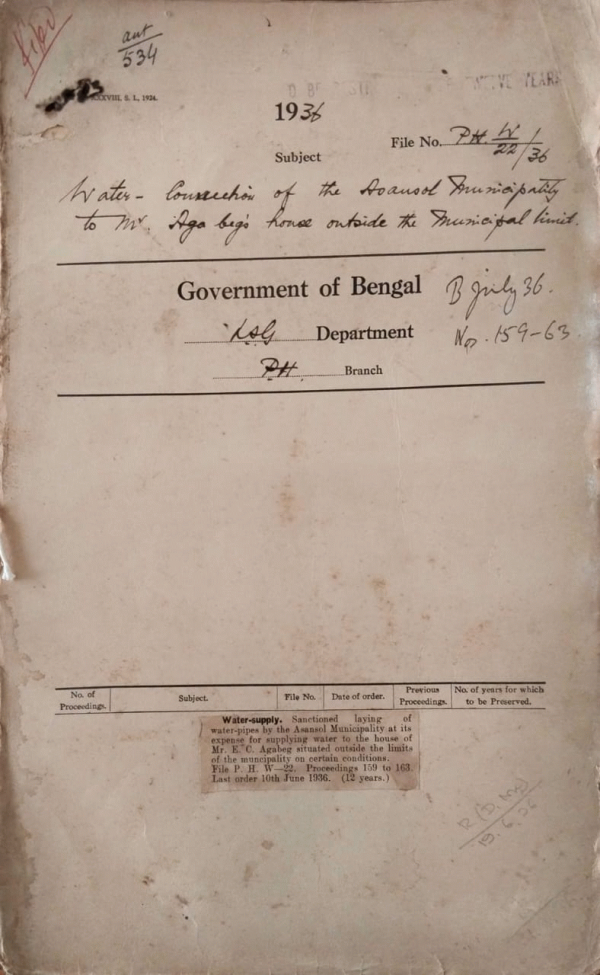 aut
534
XXXVIII, S. I., 1934.
1936
File No. P.H. W/22/36
Subject
Water - Connection of the Asansol Municipality
to Mr. Aga beg's house outside the Municipal limit.
Government of Bengal
B July 36.
LSG Department
Nos. 159-63
PH. Branch
No. of Proceedings.
Subject.
File No.
Date of order.
Previous Proceedings.
No. of years for which to be Preserved.
Water-supply. Sanctioned laying of
water-pipes by the Asansol Municipality at its
expense for supplying water to the house of
Mr. E. C. Agabeg situated outside the limits
of the muncipality on certain conditions.
File P. H. W—22. Proceedings 159 to 163.
Last order 10th June 1936. (12 years.)
19.6.36